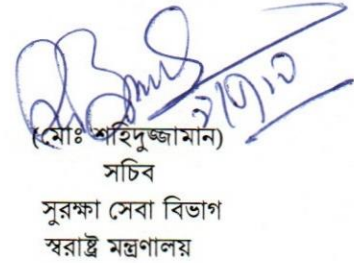 (মোঃ শহিদুজ্জামান)
সচিব
সুরক্ষা সেবা বিভাগ
স্বরাষ্ট্র মন্ত্রণালয়